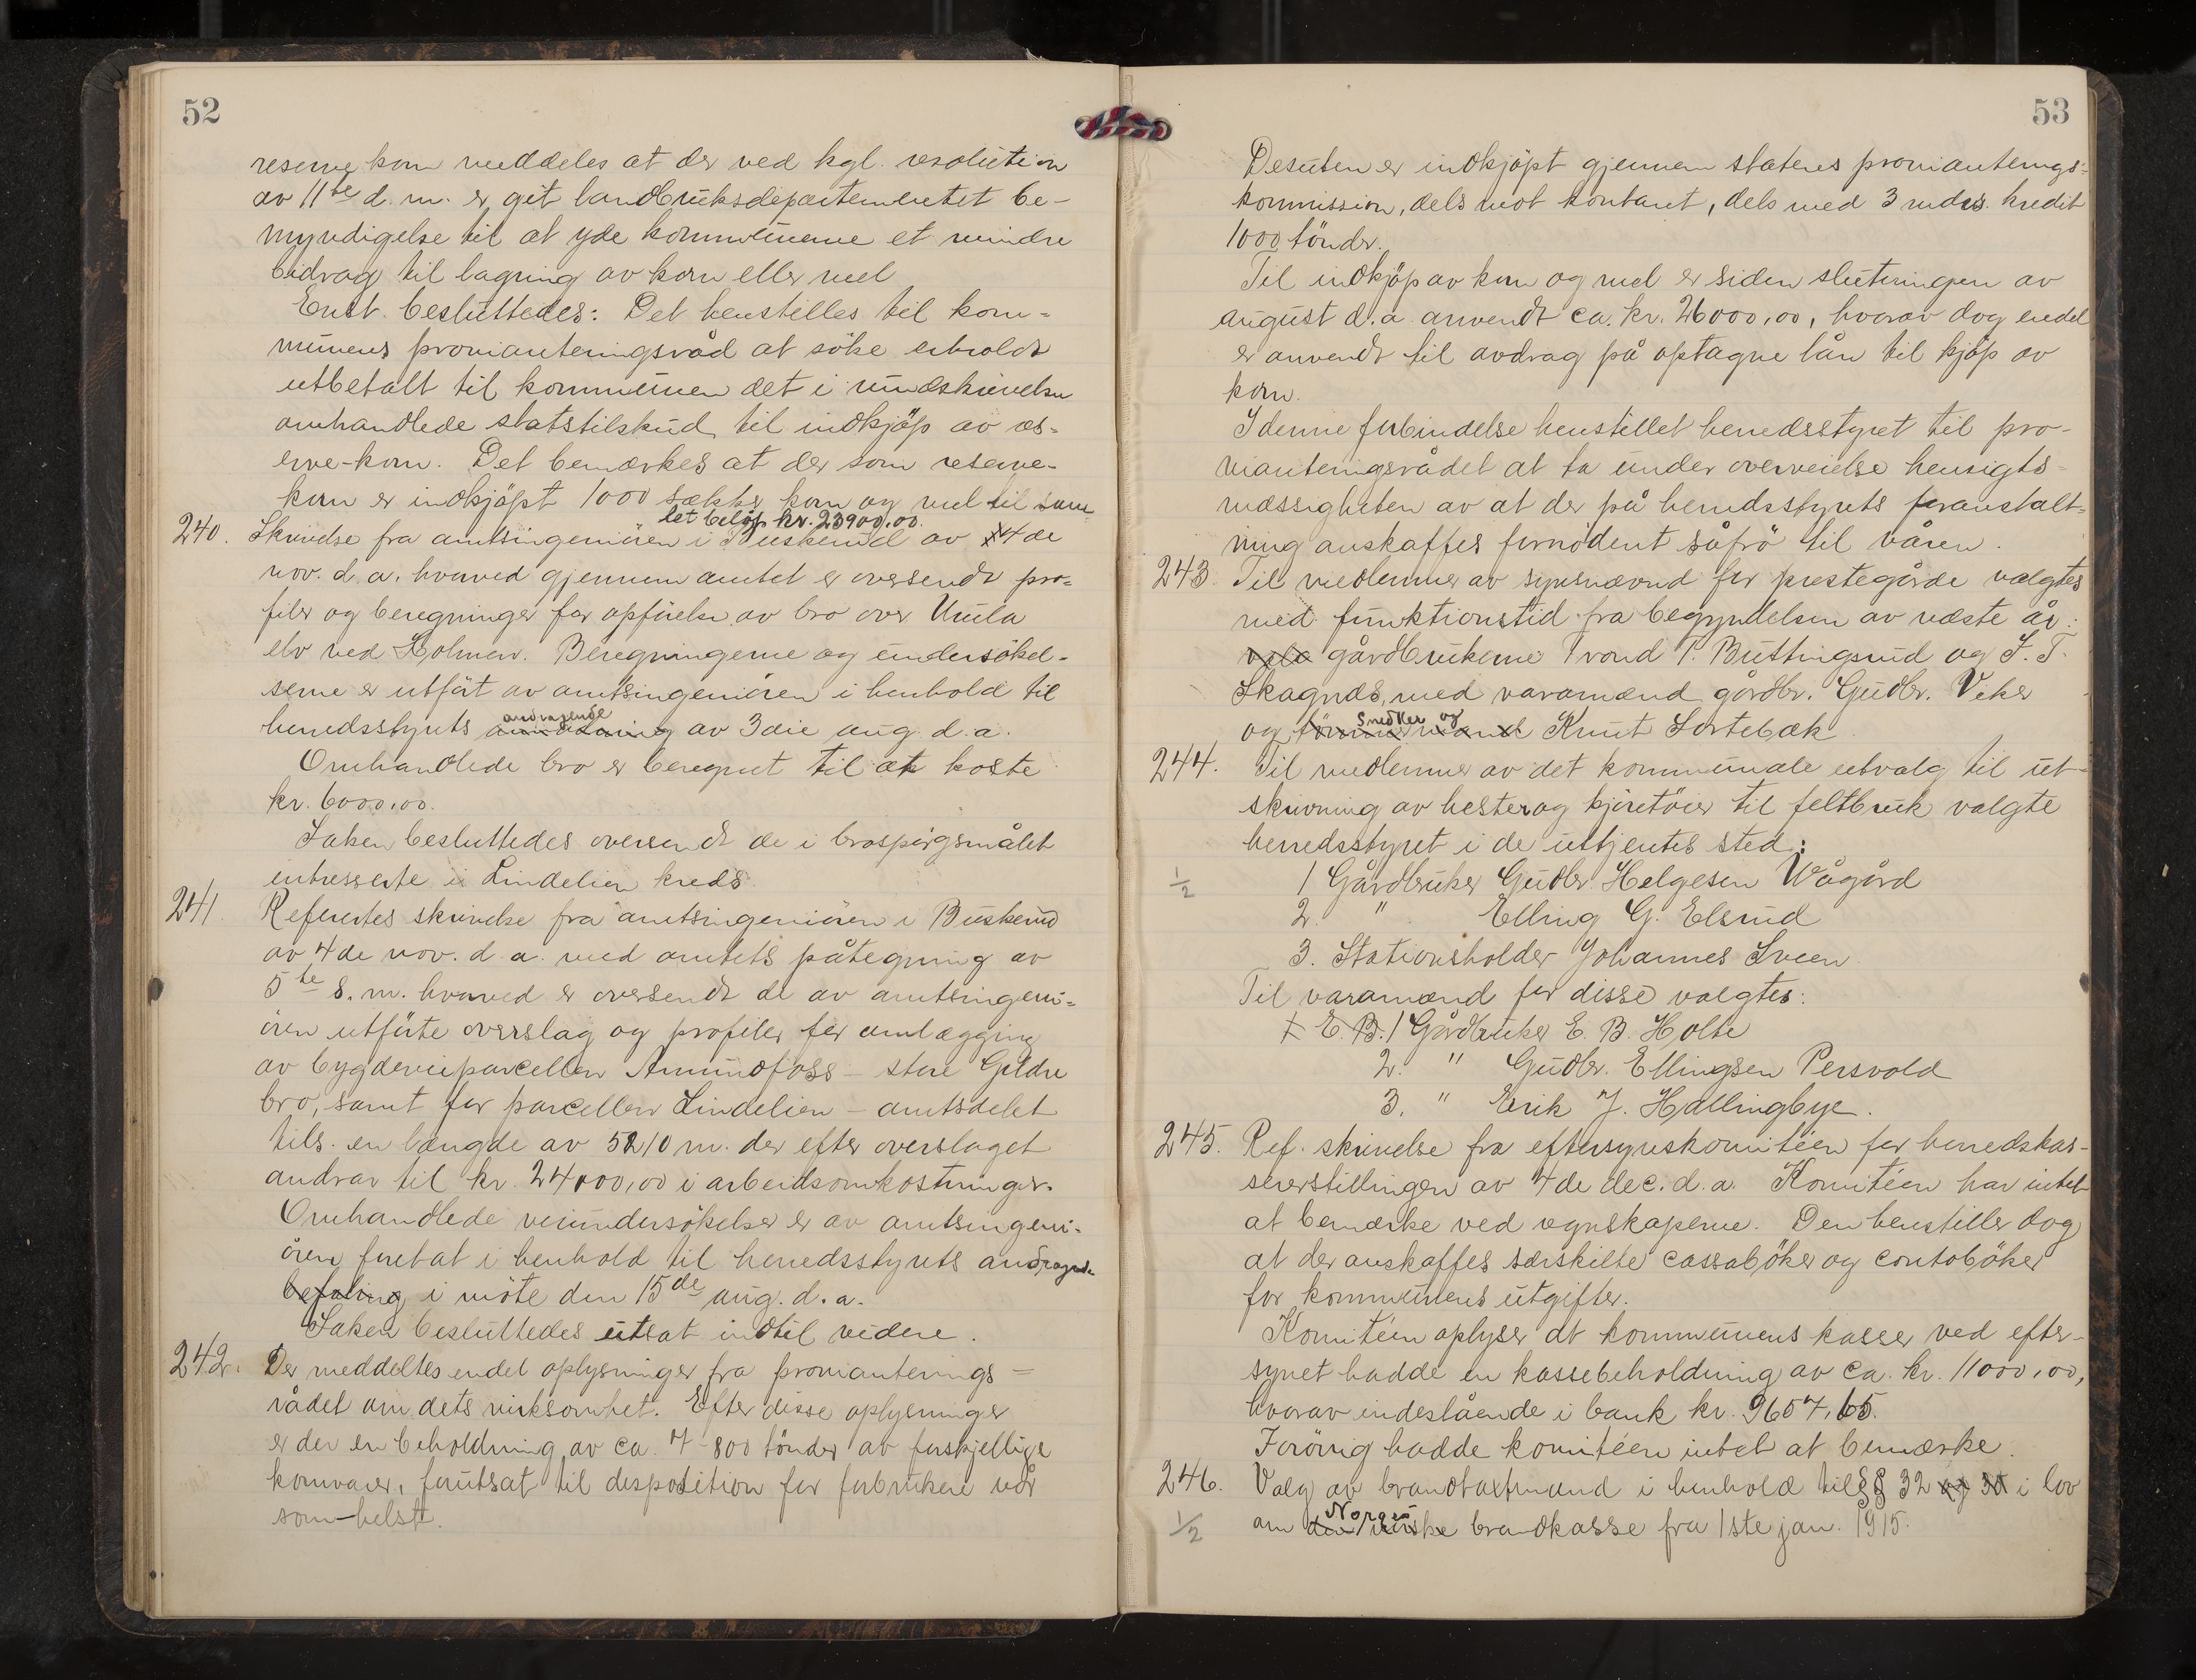 52
reservekorn meddeles at der ved kgl. resolution
av 11te d. m. er git landbruksdepartementet be-
myndigelse til at yde kommunerne et mindre
bidrag til lagring av korn eller mel
Enst. besluttedes: Det henstilles til kom-
munens provianteringsråd at söke erholdt
utbetalt til kommunen det i rundskrivelsen
omhandlede statstilskud til indkjöp av res-
erve-korn. Det bemærkes at der som reserve-
korn er indkjöpt 1000 sækker korn og mel til sam-
let belöp kr. 23900,00.
240. Skrivelse fra amtsingeniören i Buskerud av 4de
nov. d.a. hvorved gjennem amtet er oversendt pro-
filer og beregninger for opförelse av bro over Urula
elv ved Holmen. Beregningerne og undersökel-
serne er utfört av amtsingeniören i henhold til
herredsstyrets andragende av 3die aug. d.a.
Omhandlede bro er beregnet til at koste
kr. 6000,00.
Saken besluttedes oversendt de i brospörgsmålet
intresserte i Lindelien kreds.
241. Refertes skrivelse fra amtsingeniören i Buskerud
av 4de nov. d.a. med amtets påtegning av
5te s.m. hvorved er oversendt de av amtsingeni-
ören utförte overslag og profiler for omlægging
av bygdeveiparcellen Amundfoss - store Gjeldre
bro, samt for parcellen Lindelien - amtsdelet
tils. en længde av 5210 m. der efter overslaget
andrar til kr. 24000,00 i arbeidsomkostninger.
Omhandlede veiundersökelser er av amtsingeni-
ören foretat i henhold til herredsstyrets andragende
befaling i möte den 15de aug. d.a.
Saken besluttedes utsat indtil videre.
242. Der meddeltes endel oplysninger fra provianterings-
rådet om dets virksomhet. Efter disse oplysninger
er der en beholdning av ca. 7-800 tönder av forskjellige
kornvarer, forutsat til disposition for forbrukere når
som-helst.
53
Desuten er indkjöpt gjennem statens provianterings-
kommission, dels mot kontant, dels med 3 mdrs. kredit
1000 tönder.
Til indkjöp av korn og mel er siden slutningen av
august d.a. anvendt ca. kr. 26000,00, hvorav dog endel
er anvendt til avdrag på optagne lån til kjöp av
korn.
I denne forbindelse henstillet herredsstyret til pro-
vianteringsrådet at ta under overveielse hensigts-
mæssigheten av at der på herredsstyrets foranstalt-
ning anskaffes fornödent såfrö til våren.
243. Til medlemmer av synsnævnd for prestegårde valgtes
med funktionstid fra begyndelsen av næste år:
gårdbrukerne Trond P. Buttingsrud og I. T.
Skagnæs, med varamænd gårdbr. Gudbr. Veker
og snedker og Knut Sortebæk
244. Til medlemmer av det kommunale utvalg til ut-
skrivning av hester og kjöretöier til feltbruk valgte
herredsstyret i de uttjentes sted:
1/2
1 Gårdbruker Gudbr. Helgesen Wågård
2. " Elling G. Elsrud
3. Stationsholder Johannes Sveen.
Til varamænd for disse valgtes:
E. B. 1 Gårdbruker E. B. Holte
2. " Gudbr. Ellingsen Persvold
3. " Erik J. Hallingbye.
245. Ref. skrivelse fra eftersynskomitéen for herredskas-
sererstillingen av 4de dec. d.a. Komitéen har intet
at bemærke ved regnskaperne. Den henstiller dog
at der anskaffes særskilte cassaböker og contoböker
for kommunens utgifter.
Komitéen oplyser at kommunens kasse ved efter-
synet hadde en kassebeholdning av ca. kr. 11000,00,
hvorav indestående i bank kr. 9657,65.
Forövrig hadde komitéen intet at bemærke.
246. Valg av brandtaxtmænd i henhold til §§ 32 og 30 i lov
1/2
om den norske Norges brandkasse fra 1ste jan. 1915.